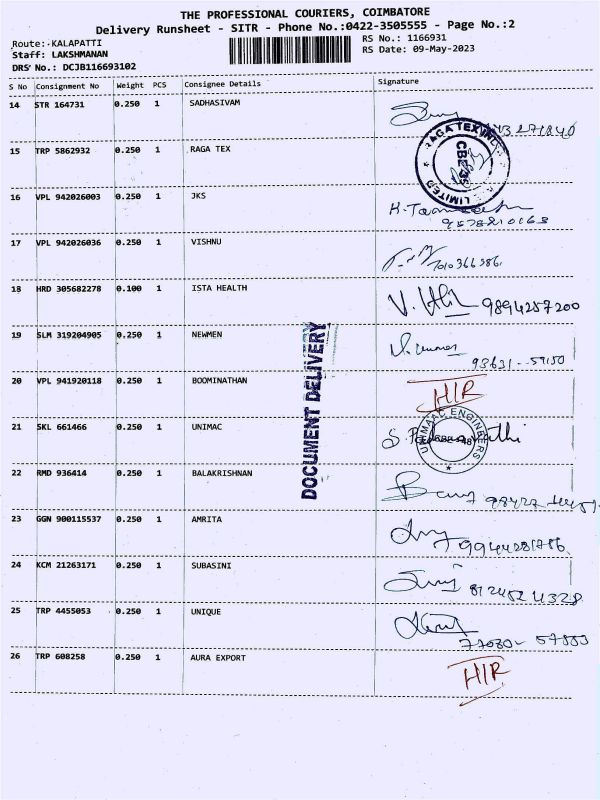 THE PROFESSIONAL COURIERS, COIMBATORE
Delivery Runsheet - SITR - Phone No.:0422-3505555 - Page No.:2
Route: KALAPATTI
RS No.: 1166931
Staff: LAKSHMANAN
RS Date: 09-May-2023
DRS No.: DCJB116693102
S No Consignment No Weight PCS Consignee Details Signature
14 STR 164731 0.250 1 SADHASIVAM
15 TRP 5862932 0.250 1 RAGA TEX
RAGA TEX
LIMITED
16 VPL 942026003 0.250 1 JKS
9578210168
17 VPL 942026036 0.250 1 VISHNU
7010366386
18 HRD 305682278 0.100 1 ISTA HEALTH
9894287200
19 SLM 319204905 0.250 1 NEWMEN
93631-59150
DOCUMENT DELIVERY
20 VPL 941920118 0.250 1 BOOMINATHAN HIR
21 SKL 661466 0.250 1 UNIMAC
ENGINEERS
22 RMD 936414 0.250 1 BALAKRISHNAN
23 GGN 900115537 0.250 1 AMRITA
9944281786
24 KCM 21263171 0.250 1 SUBASINI
25 TRP 4455053 0.250 1 UNIQUE
26 TRP 608258 0.250 1 AURA EXPORT HIR